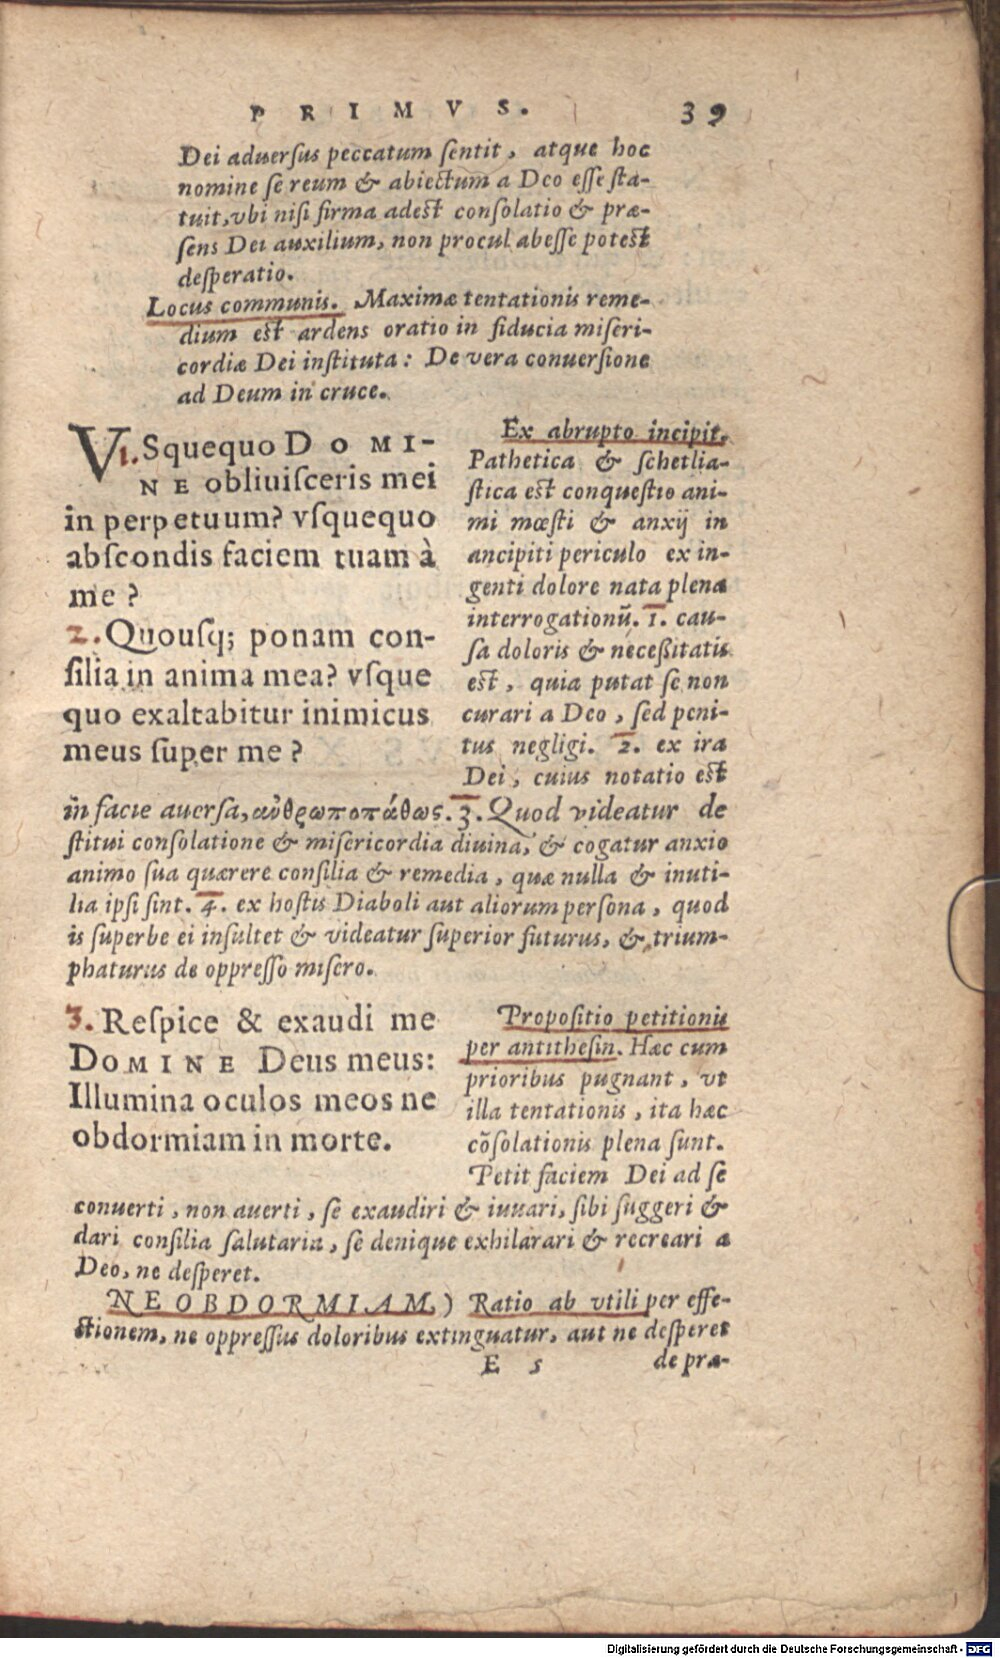 PRIMVS. 39
Dei aduersus peccatum sentit, atque hoc
nomine se reum & abiectum a Deo esse sta-
tuit, vbi nisi firma adest consolatio & præ-
sens Dei auxilium, non procul abesse potest
desperatio.
Locus communis. Maximæ tentationis reme-
dium est ardens oratio in fiducia miseri-
cordiæ Dei instituta: De vera conuersione
ad Deum in cruce.
V1.Squequo DOMI-
NE obliuisceris mei
in perpetuum? vsquequo
abscondis faciem tuam à
me?
2. Quousq; ponam con-
silia in anima mea? vsque
quo exaltabitur inimicus
meus super me?
Ex abrupto incipit.
Pathetica & schetlia-
stica est conquestio ani-
mi mœsti & anxij in
ancipiti periculo ex in-
genti dolore nata plena
interrogationū. 1. cau-
sa doloris & necessitatis
est, quia putat se non
curari a Deo, sed peni-
tus negligi. 2. ex ira
Dei, cuius notatio est
in facie auersa, αὐθρωποπάθως. 3. Quod videatur de
stitui consolatione & misericordia diuina, & cogatur anxio
animo sua quærere consilia & remedia, quæ nulla & inuti-
lia ipsi sint. 4. ex hostis Diaboli aut aliorum persona, quod
is superbe ei insultet & videatur superior futurus, & trium-
phaturus de oppresso misero.
3. Respice & exaudi me
DOMINE Deus meus:
Illumina oculos meos ne
obdormiam in morte.
Propositio petitionis
per antithesin. Hæc cum
prioribus pugnant, vt
illa tentationis, ita hæc
cōsolationis plena sunt.
Petit faciem Dei ad se
conuerti, non auerti, se exaudiri & iuuari, sibi suggeri &
dari consilia salutaria, se denique exhilarari & recreari a
Deo, ne desperet.
NE OBDORMIAM) Ratio ab vtili per effe-
ctionem, ne oppressus doloribus extinguatur, aut ne desperet
E 5 de præ-
Digitalisierung gefördert durch die Deutsche Forschungsgemeinschaft - DFG